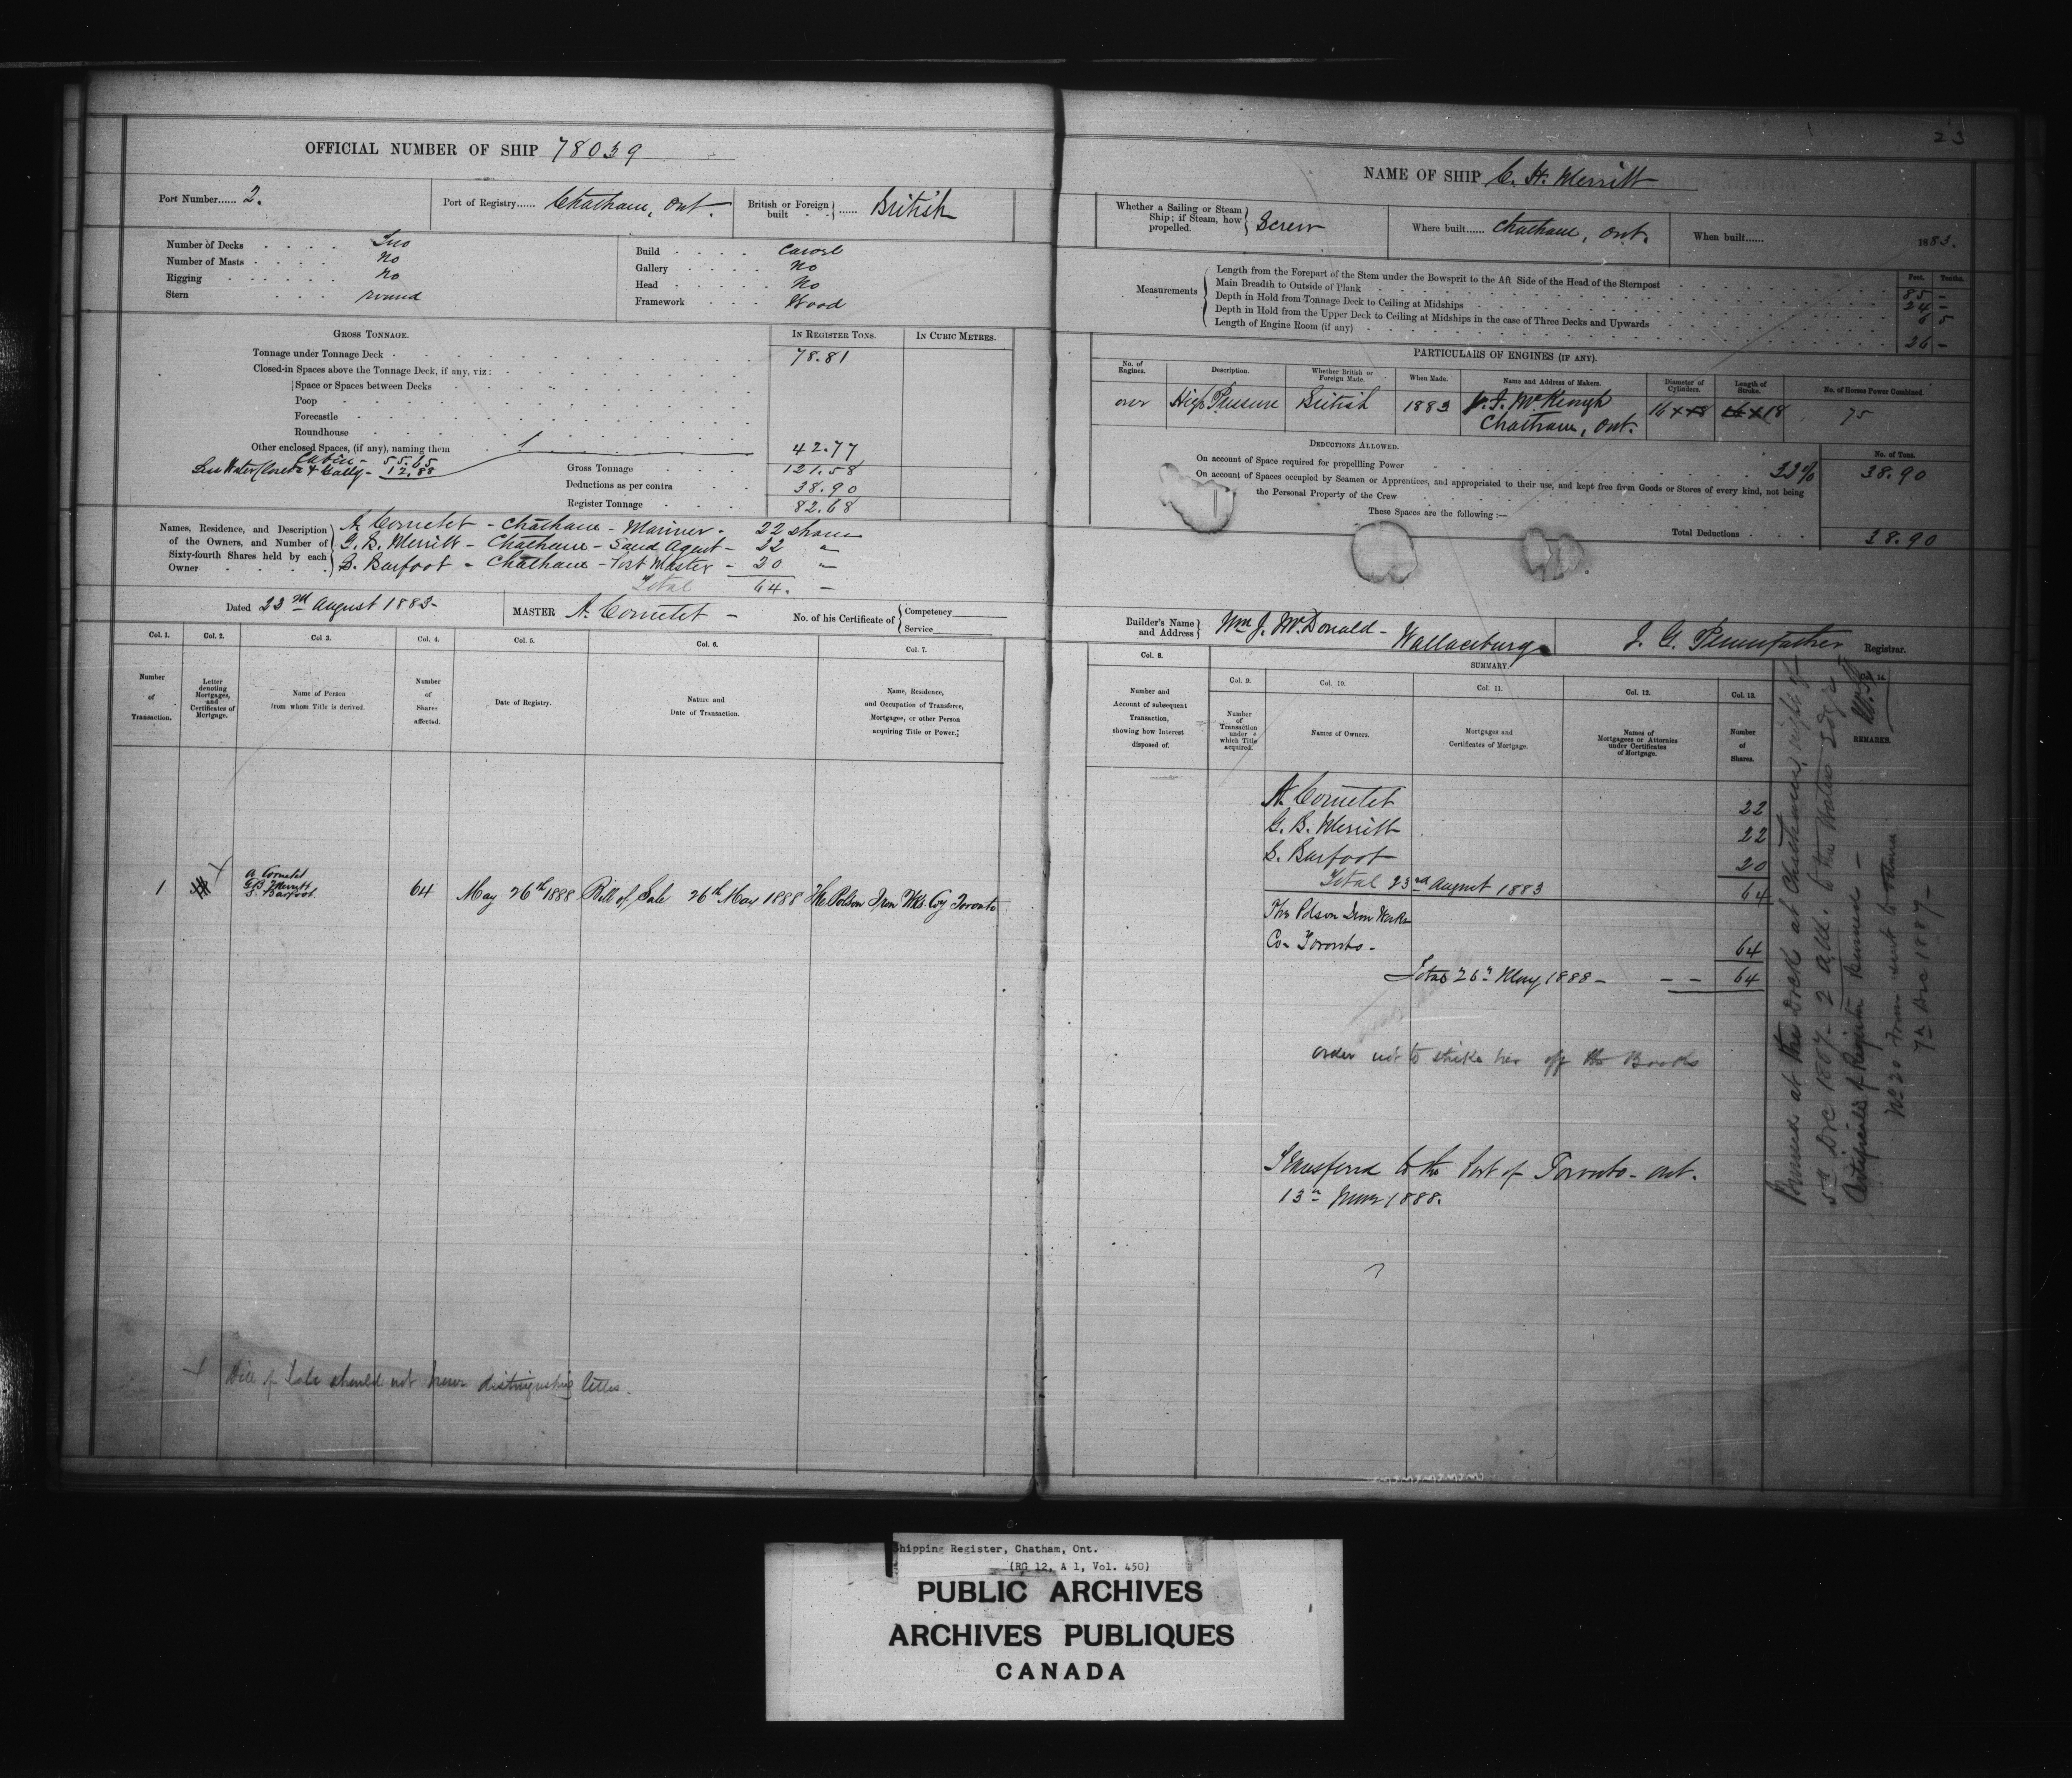 23
OFFICIAL NUMBER OF SHIP 78039
Port Number...... 2.
Port of Registry...... Chatham, Ont.
British or Foreign built ...... British
Number of Decks Two
Number of Masts No
Rigging No
Stern round
Build Carvel
Gallery No
Head No
Framework Wood
GROSS TONNAGE.
IN REGISTER TONS.
IN CUBIC METRES.
Tonnage under Tonnage Deck 78.81
Closed-in Spaces above the Tonnage Deck, if any, viz:
Space or Spaces between Decks
Poop
Forecastle
Roundhouse
Other enclosed Spaces, (if any), naming them 42.77
Cabin - 55.65
Less Water Closets & Gally - 12.88
Gross Tonnage 121.58
Deductions as per contra 38.90
Register Tonnage 82.68
Names, Residence, and Description of the Owners, and Number of Sixty-fourth Shares held by each Owner
A. Cornetet - Chatham - Mariner - 22 shares
G. B. Merritt - Chatham - Land Agent - 22 "
S. Barfoot - Chatham - Post Master - 20 "
Total 64. -
Dated 23rd August 1883-
MASTER A. Cornetet -
No. of his Certificate of Competency
Service
Col. 1. Col. 2. Col 3. Col. 4. Col. 5. Col. 6. Col. 7.
Number of Transaction.
Letter denoting Mortgages, and Certificates of Mortgage.
Name of Person from whom Title is derived.
Number of Shares affected.
Date of Registry.
Nature and Date of Transaction.
Name, Residence, and Occupation of Transferee, Mortgagee, or other Person acquiring Title or Power.
1 A Cornetet
G B Merritt
S. Barfoot 64 May 26th 1888 Bill of Sale 26th May 1888 The Polson Iron Wks Coy Toronto
x Bill of Sale should not have distinguishing letter.
NAME OF SHIP C. H. Merritt
Whether a Sailing or Steam Ship; if Steam, how propelled. Screw
Where built...... Chatham, Ont.
When built...... 1883.
Measurements
Length from the Forepart of the Stem under the Bowsprit to the Aft Side of the Head of the Sternpost
Main Breadth to Outside of Plank
Depth in Hold from Tonnage Deck to Ceiling at Midships
Depth in Hold from the Upper Deck to Ceiling at Midships in the case of Three Decks and Upwards
Length of Engine Room (if any)
Feet. Tenths.
85 -
24 -
26 -
PARTICULARS OF ENGINES (IF ANY).
No. of Engines.
Description.
Whether British or Foreign Made.
When Made.
Name and Address of Makers.
Diameter of Cylinders.
Length of Stroke.
No. of Horses Power Combined.
one High Pressure British 1883 W. F. McKeough 16 x 18 16 x 18 75
Chatham, Ont.
DEDUCTIONS ALLOWED.
No. of Tons.
On account of Space required for propelling Power 32% 38.90
On account of Spaces occupied by Seamen or Apprentices, and appropriated to their use, and kept free from Goods or Stores of every kind, not being
the Personal Property of the Crew
These Spaces are the following:—
Total Deductions 38.90
Builder's Name and Address Wm J. McDonald - Wallaceburg
J. G. Pennefather Registrar.
SUMMARY.
Col. 8. Col. 9. Col. 10. Col. 11. Col. 12. Col. 13. Col. 14.
Number and Account of subsequent Transaction, showing how Interest disposed of.
Number of Transaction under which Title acquired.
Names of Owners.
Mortgages and Certificates of Mortgage.
Names of Mortgagees or Attornies under Certificates of Mortgage.
Number of Shares.
REMARKS.
A. Cornetet 22
G. B. Merritt 22
S. Barfoot 20
Total 23rd August 1883 64
The Polson Iron Works
Co. Toronto - 64
Total 26th May 1888 - - - 64
order not to strike her off the Books
Transferred to the Port of Toronto - Ont.
13th 1888.
Burned at the Dock at Chatham, night of
5th Dec 1887 - 2 a.m. to the Waters Edge
Certificate of Register Burned -
No 20 Form sent to Ottawa
7th Dec 1887 -
Shipping Register, Chatham, Ont.
(RG 12, A 1, Vol. 450)
PUBLIC ARCHIVES
ARCHIVES PUBLIQUES
CANADA